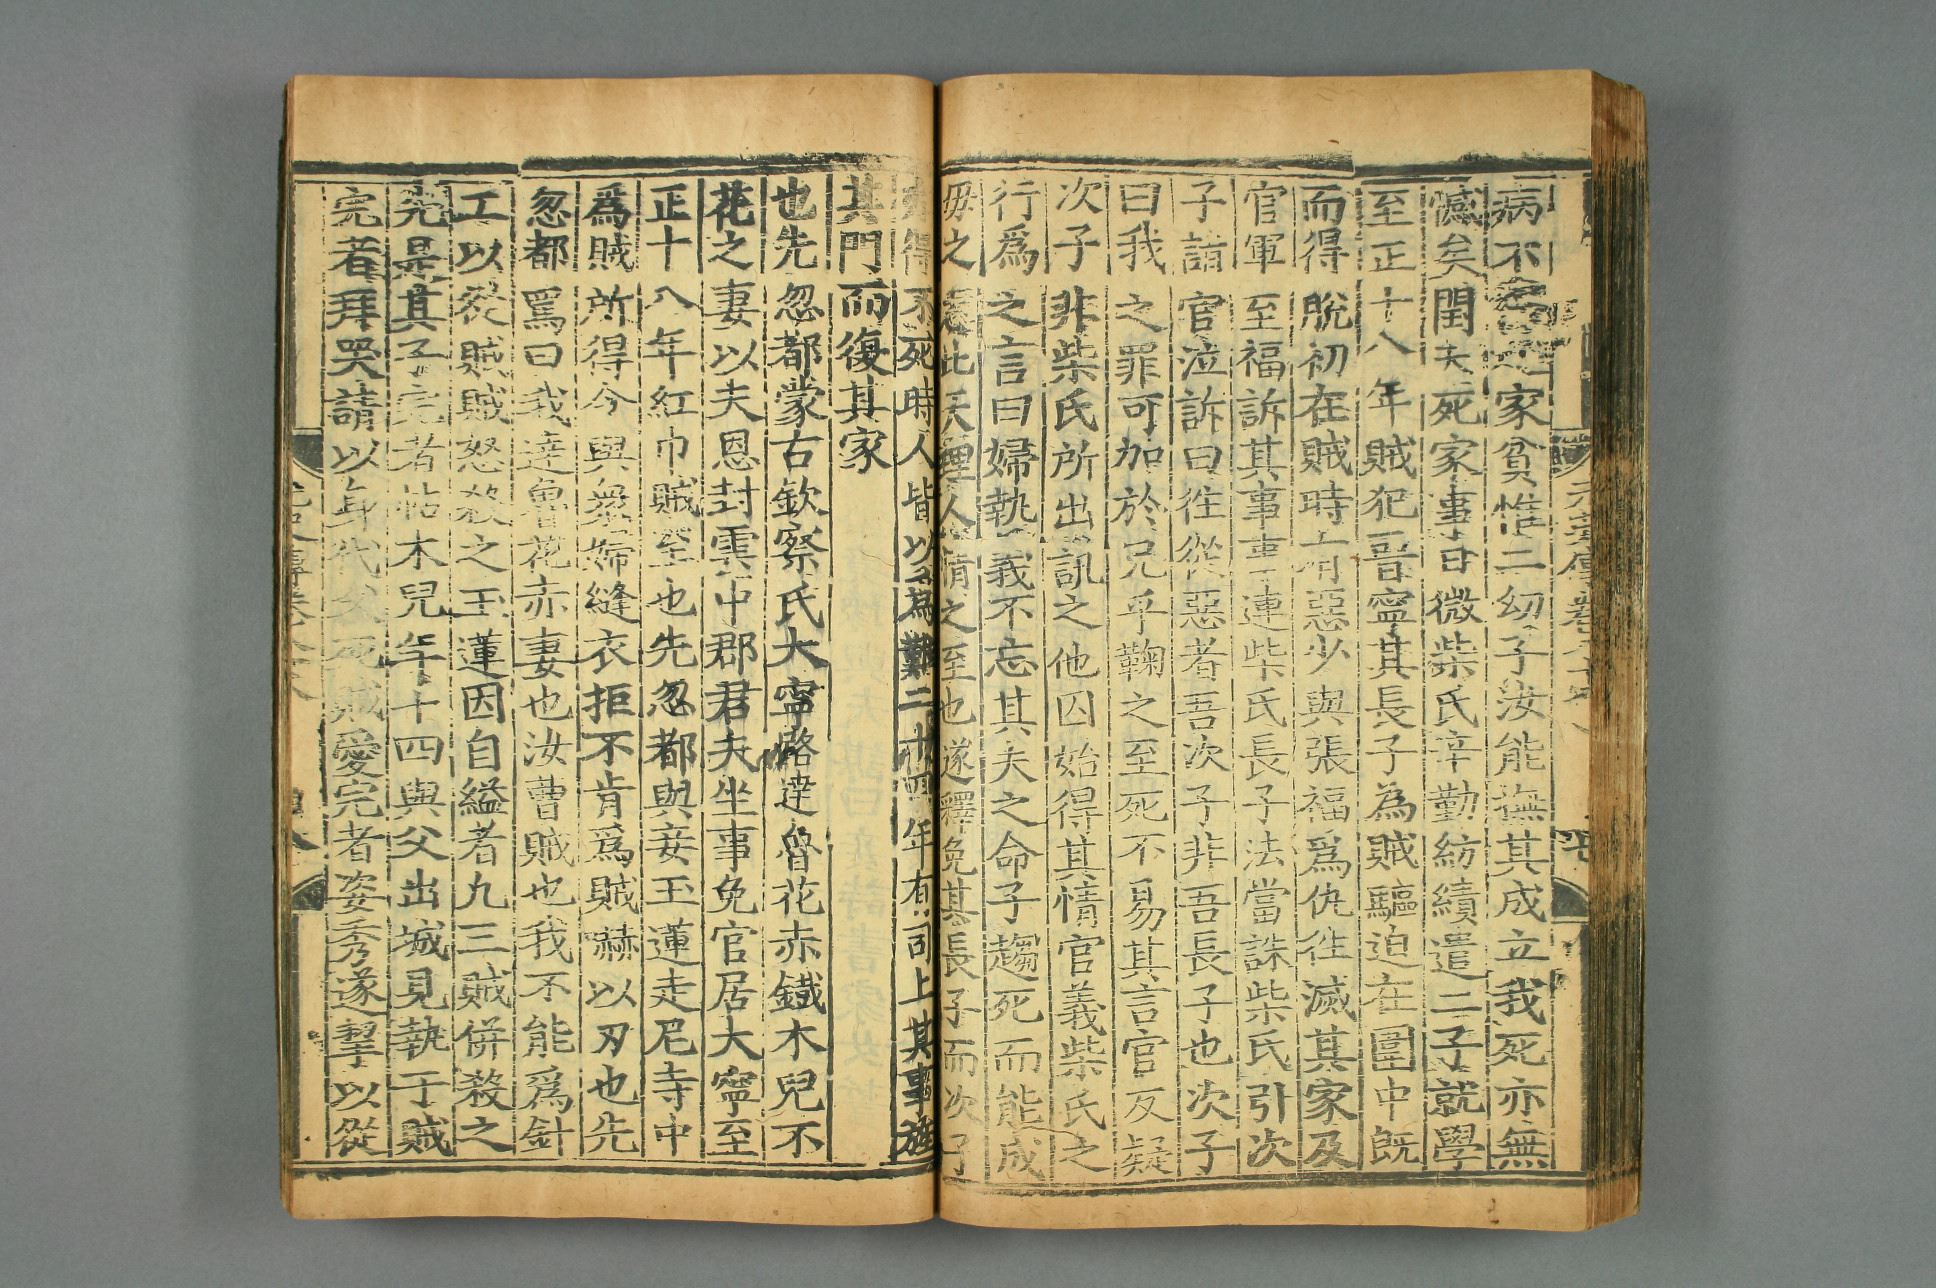 病不家貧惟二幼子汝能撫其成立我死亦無
憾矣閏夫死家事日微柴氏辛勤紡績遣二子就學
至正十八年賊犯晉寧其長子為賊驅迫在圍中既
而得脫初在賊時有惡少與張福爲仇往滅其家及
官軍至福訴其事事連柴氏長子法當誅柴氏引次
子詣官泣訴曰往從惡者吾次子非吾長子也次子
曰我之罪可加於兄乎鞫之至死不易其言官反疑
次子非柴氏所出訊之他囚始得其情官義柴氏之
行爲之言曰婦執義不忘其夫之命子趨死而能成
毋之此天理人情之至也遂釋免其長子而次子
亦得不死時人皆以爲難二十四年有司上其事旌
其門而復其家
也先忽都蒙古欽察氏大寧路達魯花赤鐵木兒不
花之妻以夫恩封雲中郡君夫坐事免官居大寧至
正十八年紅巾賊至也先忽都與妾玉蓮走尼寺中
爲賊所得令與衆婦縫衣拒不肯爲賊嚇以刃也先
忽都罵曰我達魯花赤妻也汝曹賊也我不能爲針
工以從賊賊怒殺之玉蓮因自縊者九三賊併殺之
先是其子完者帖木兒年十四與父出城見執于賊
完者拜哭請以身代父死賊愛完者姿秀遂挈以從